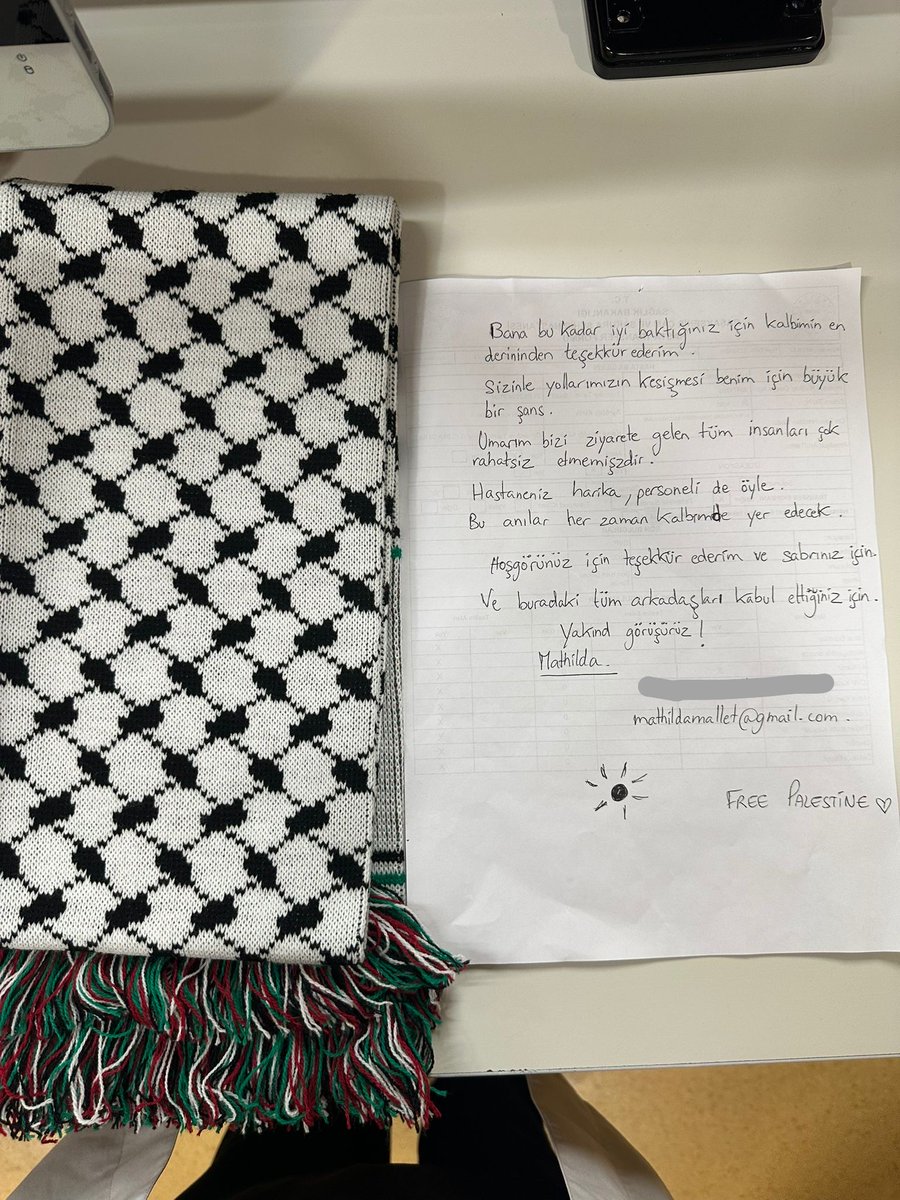 Bana bu kadar iyi baktığınız için kalbimin en
derininden teşekkür ederim.
Sizinle yollarımızın kesişmesi benim için büyük
bir şans.
Umarım bizi ziyarete gelen tüm insanları çok
rahatsiz etmemişzdir.
Hastaneniz harika, personeli de öyle.
Bu anılar her zaman kalbimde yer edecek.
Hoşgörünüz için teşekkür ederim ve sabrınız için.
Ve buradaki tüm arkadaşları kabul ettiğiniz için.
Yakınd görüşürüz!
Mathilda.
mathildamallet@gmail.com.
FREE PALESTINE ♡